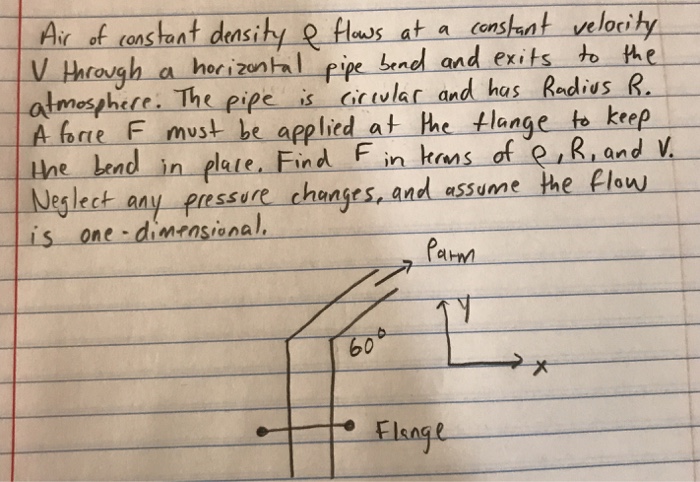 Air of constant density ϱ flows at a constant velocity
V through a horizontal pipe bend and exits to the
atmosphere. The pipe is circular and has Radius R.
A force F must be applied at the flange to keep
the bend in place. Find F in terms of ϱ, R, and V.
Neglect any pressure changes, and assume the flow
is one-dimensional.
Patm
Y
60°
x
Flange